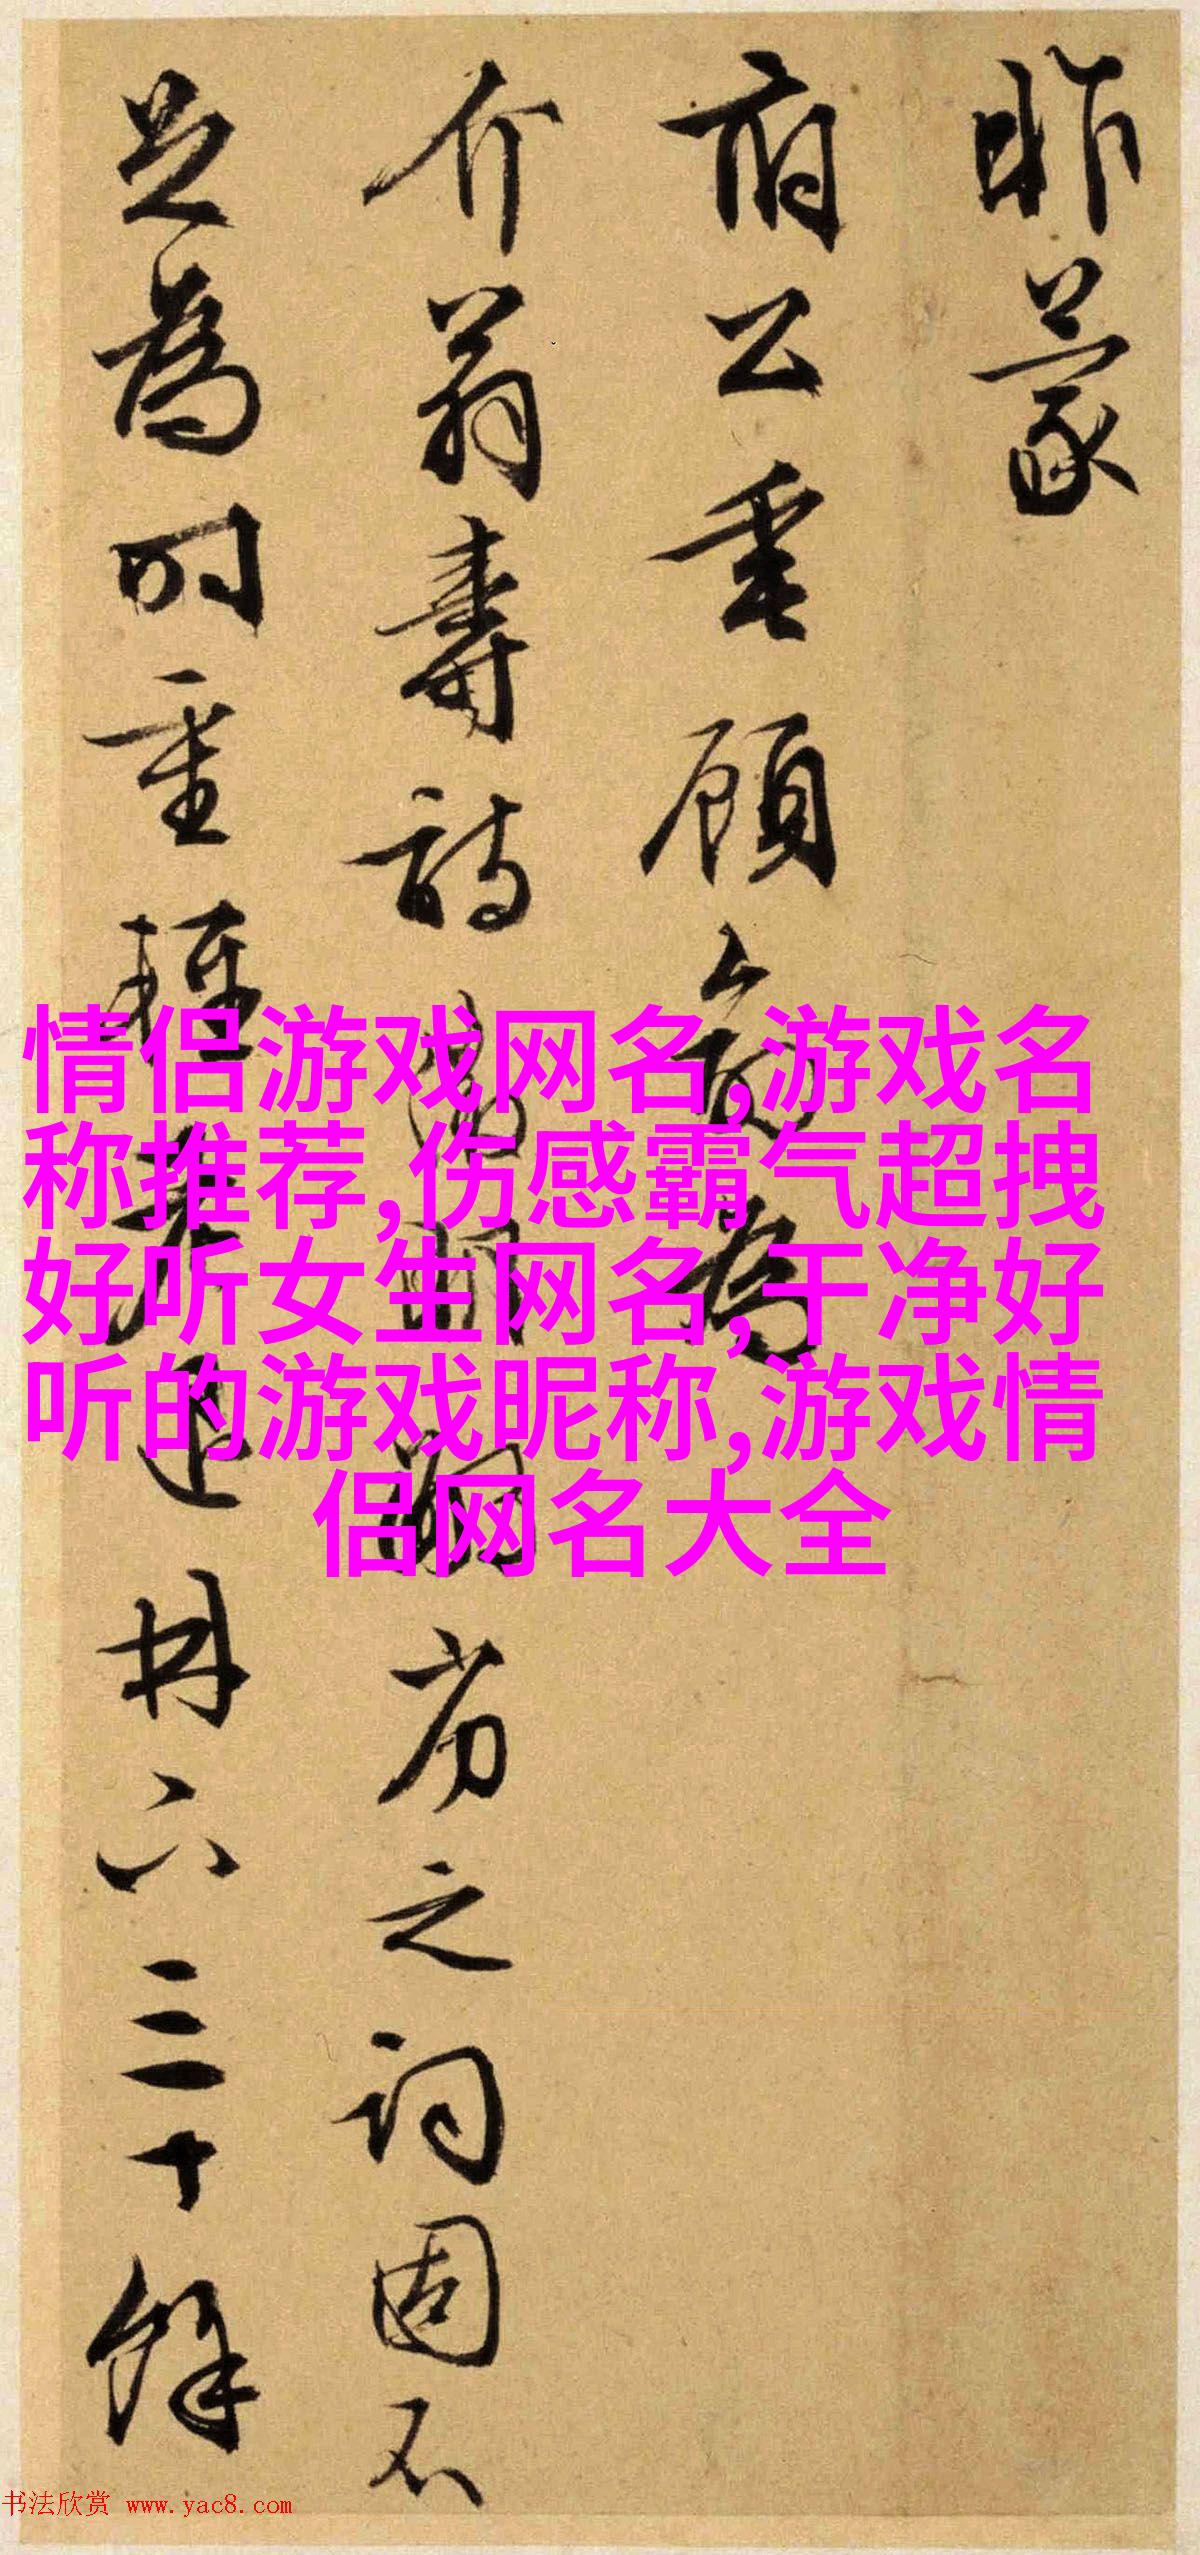 昨蒙
府公垂顧命爲
介翁壽詩
之詞固不
足爲時重輕
六三十餘
情侣游戏网名,游戏名
称推荐,伤感霸气超拽
好听女生网名,干净好
听的游戏昵称,游戏情
侣网名大全
书法欣赏 www.yac8.com